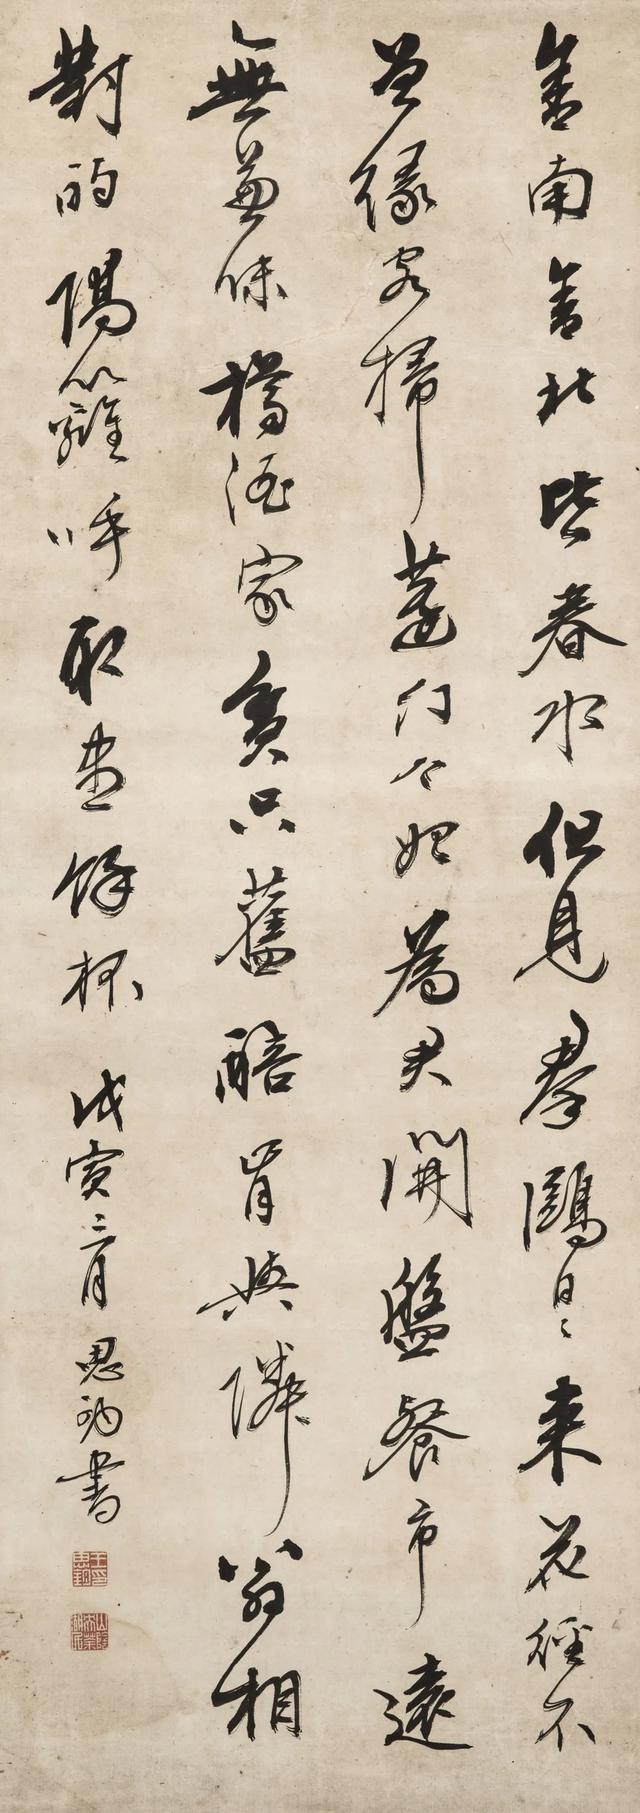 舍南舍北皆春水但見羣鷗日〻来花徑不
曾緣客掃蓬門今始為君開盤餐市遠
無兼味樽酒家貧只舊醅肯與隣翁相
對隔籬呼取盡餘杯 戊寅三月 思書